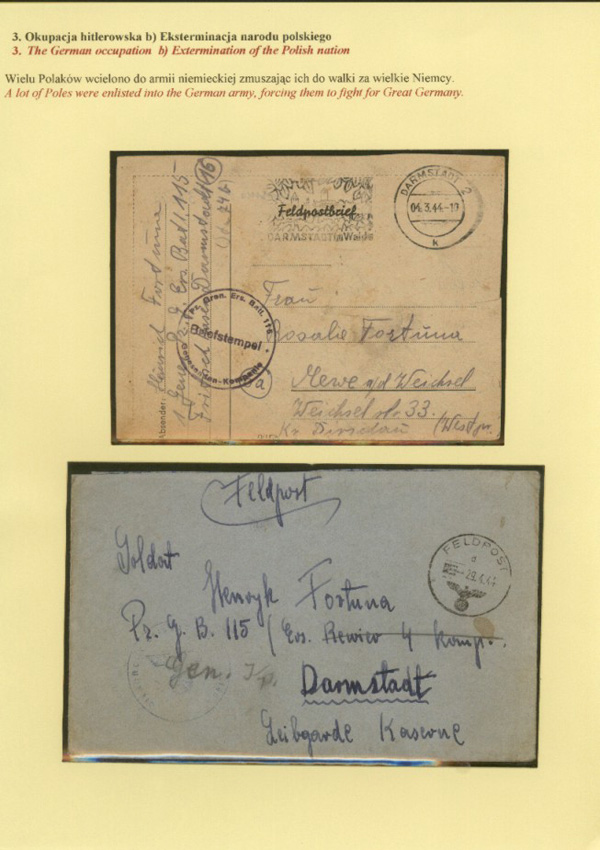 3. Okupacja hitlerowska b) Eksterminacja narodu polskiego
3. The German occupation b) Extermination of the Polish nation
Wielu Polaków wcielono do armii niemieckiej zmuszając ich do walki za wielkie Niemcy.
A lot of Poles were enlisted into the German army, forcing them to fight for Great Germany.
Absender: Heinrich Fortuna
1 Gene. Pz. G. Ers Batl. 115
Darmstadt 16
Feldpostbrief
DARMSTADT im Walde
DARMSTADT 2
04.3.44-19
k
Pz. Gren. Ers. Batl. 115
Briefstempel
Genesenden-Kompanie
Frau
Rosalie Fortuna
Mewe a/d Weichsel
Weichselstr 33.
Kr Dirschau (Westpr.
Feldpost
FELDPOST
d
29.4.44
Soldat
Henryk Fortuna
Pz. G. B. 115 / Ers. Rewico 4 Komp.
Gen. Kp.
Darmstadt
Leibgarde Kaserne